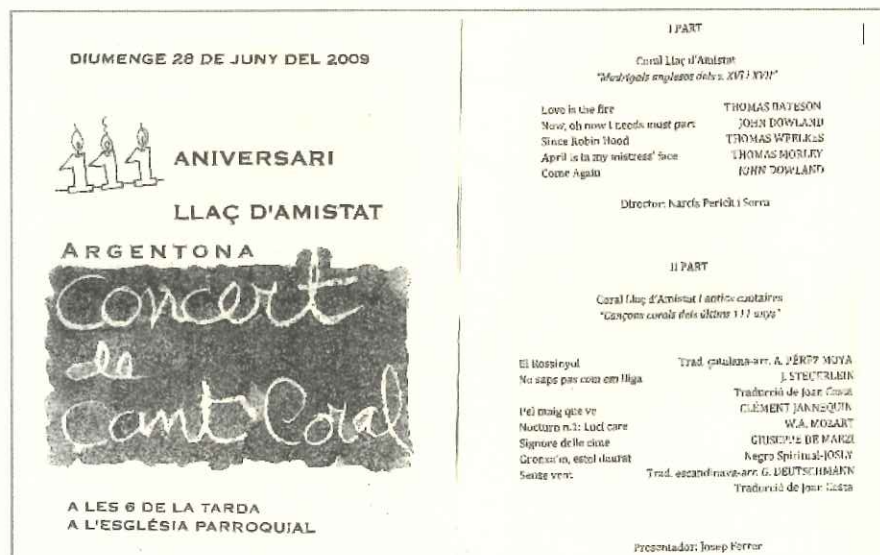 DIUMENGE 28 DE JUNY DEL 2009
111 ANIVERSARI
LLAÇ D'AMISTAT
ARGENTONA
Concert
de
Cant Coral
A LES 6 DE LA TARDA
A L'ESGLÉSIA PARROQUIAL
I PART
Coral Llaç d'Amistat
"Madrigals anglesos dels s. XVI i XVII"
Love is the fire THOMAS BATESON
Now, oh now I needs must part JOHN DOWLAND
Since Robin Hood THOMAS WEELKES
April is in my mistress' face THOMAS MORLEY
Come Again JOHN DOWLAND
Director: Narcís Perich i Serra
II PART
Coral Llaç d'Amistat i antics cantaires
"Cançons corals dels últims 111 anys"
El Rossinyol Trad. catalana-arr. A. PÉREZ MOYA
No saps pas com em lliga J. STEGERLEIN
Traducció de Joan Costa
Pel maig que ve CLÉMENT JANNEQUIN
Nocturn n.1: Luci care W.A. MOZART
Signore delle cime GIUSEPPE DE MARZI
Gronxa'm, estel daurat Negro Spiritual-JOSLY
Sense vent Trad. escandinava-arr. G. DEUTSCHMANN
Traducció de Joan Costa
Presentador: Josep Ferrer